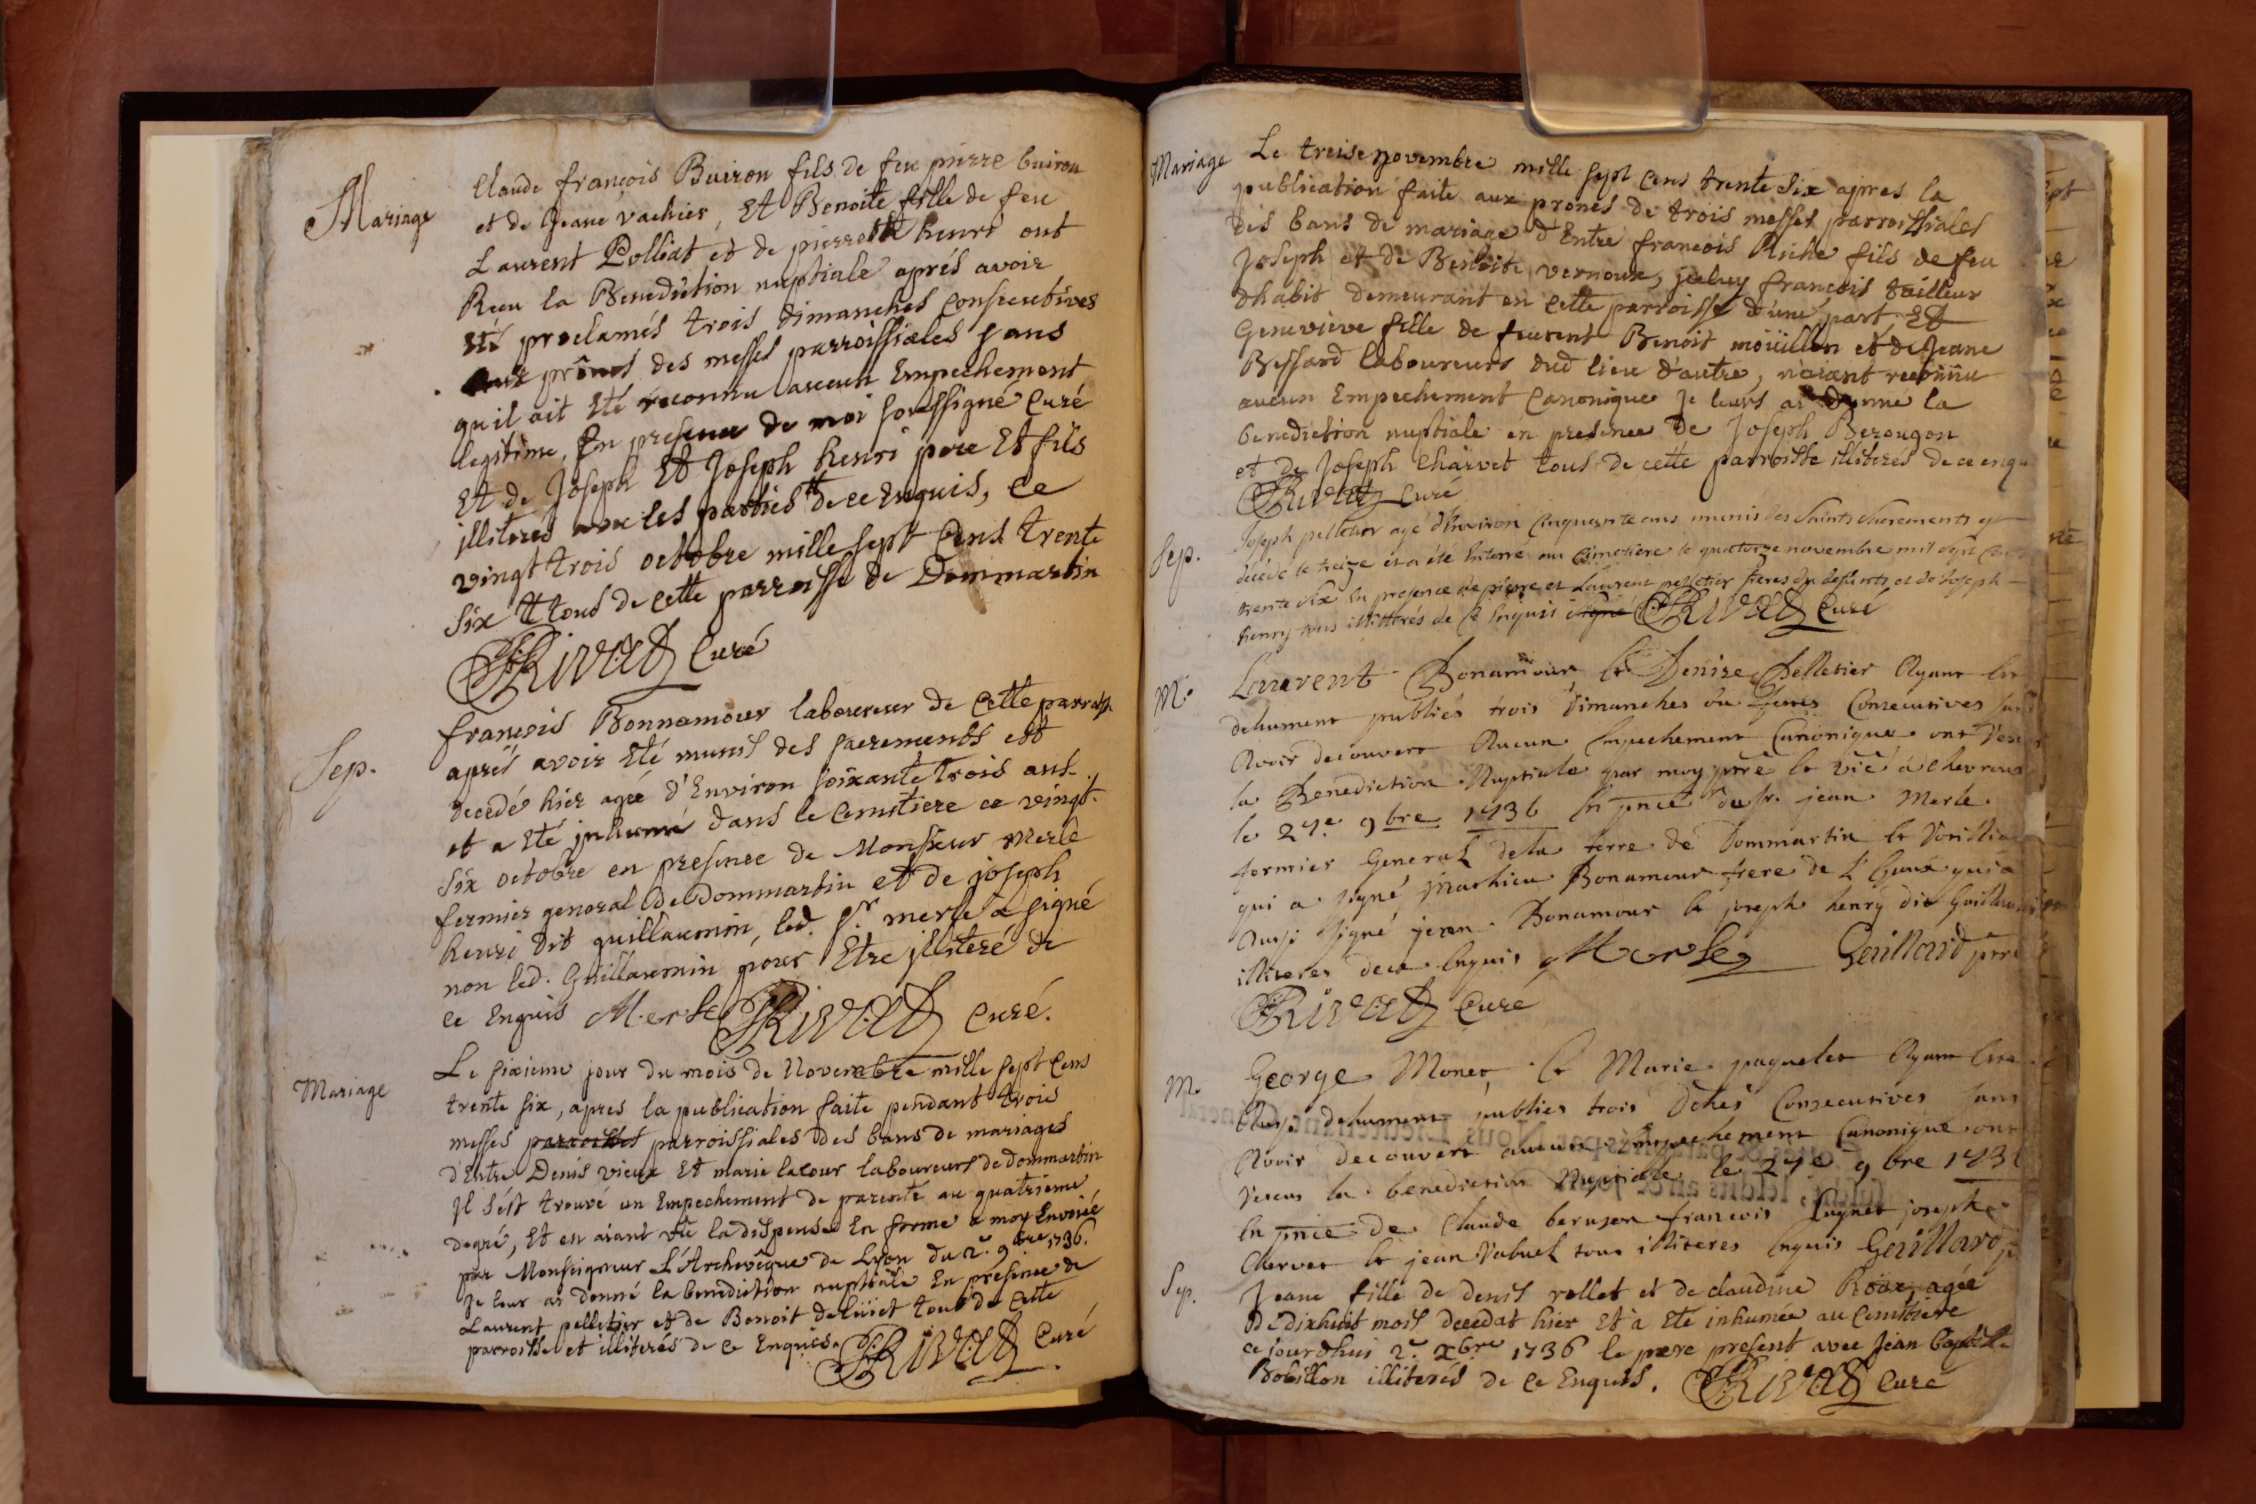 Mariage
Claude françois Buiron fils de feu pierre buiron
et de Jeane vachier, Et Benoite fille de feu
Laurent Polliat et de pierrette henri ont
Receu la Benediction nuptiale aprés avoir
Eté proclamés trois dimanches consecutives
aux prônes des messes parroissiales sans
qu'il ait Eté reconnu aucun Empechement
legitime, En presence de moi soussigné Curé
Et de Joseph Et Joseph henri pere Et fils
illiterés avec les parties de ce Enquis, Ce
vingt trois octobre mille sept Cens trente
six Et tous de cette parroisse de Dommartin
Rivat Curé
Sep.
françois Bonnamour laboureur de cette parroisse
aprés avoir Eté munis des sacrements est
decedé hier agée d'Environ soixante trois ans
et a Eté inhumé dans le Cemitiere ce vingt
six octobre en presence de Monsieur Merle
fermier general de Dommartin et de joseph
henri dit guillaumin, led. Sr. merle a signé
non led. Guillaumin pour Etre illiteré de
ce Enquis Merle Rivat Curé.
Mariage
Le sixieme jour du mois de Novembre mille sept Cens
trente six, apres la publication faite pendant trois
messes parroissiales des bans de mariages
d'Entre Denis vieux Et marie lacour laboureurs de Dommartin
Il s'est trouvé un Empechement de parenté au quatrieme
degré, Et en aiant vûe la dispense En forme a moy Envoiée
par Monseigneur L'Archevêque de Lyon du 2e. 9bre 1736.
Je leur ai donné la benediction nuptiale En presence de
Laurent pelletier et de Benoit deliüet tous de cette
parroisse et illiterés de ce Enquis. Rivat Curé
Mariage
Le treise novembre mille sept cens trente six apres la
publication faite aux prones de trois messes parroissiales
des bans de mariage d'Entre francois Riche fils de feu
Joseph et de Benoite vernoux, iceluy francois tailleur
dhabit demeurant en cette parroisse d'une part, Et
Genevieve fille de feu Benoit moüillon et de Jeane
Bessard laboureurs dud lieu d'autre, n'aiant reconnu
aucun Empechement Canonique Je leurs ai donné la
benediction nuptiale en presence de Joseph Berougon
et de Joseph Charvet tous de cette parroisse illiterés de ce enqu
Rivat Curé
Sep.
Joseph pelletier agé d'Environ Cinquante ans munis des Saints Sacrements est
decedé le treize et a été Enterré au Cimetiere le quatorze novembre mil sept cens
trente six En presence de pierre et Laurent pelletier freres du deffunts et de Joseph
henry tous illitterés de ce Enquis Rivat Curé
M.
Laurent Bonamour et Denize Pelletier Ayant Ete
dehument publiés trois Dimanches ou festes Consecutives sans
Avoir decouvert Aucun Empechement Canonique ont
la Benediction Nuptiale par moy ptre et vic̃ a Chevroux
le 27e 9bre 1736 En pnce du Sr. jean Merle
fermier General de la terre de Dommartin et
qui a signé Mathieu Bonamour frere de L'Epoux qui a
Aussi signé jean Bonamour et joseph henry dit Guillaumin
illiteres de ce Enquis Merle Gaillard ptre
Rivat Curé
M.
George Monet Et Marie paquelet Ayant Ete
Aussi dehument publies trois dches Consecutives sans
Avoir decouvert aucun Empechement Canonique ont
receu la benediction Nuptiale le 27e 9bre 1736
En pnce de Claude beruzon francois joseph
Chervet Et jean Vabuel tous illiteres Enquis Gaillard
Sep.
Jeane fille de denis rollet et de claudine Roux, agée
de dixhuit mois decedat hier Et à Eté inhumée au Cemitiere
ce jourdhui 2e. Xbre 1736 le pere present avec Jean baptiste
Bobillon illiterés de ce Enquis. Rivat Curé